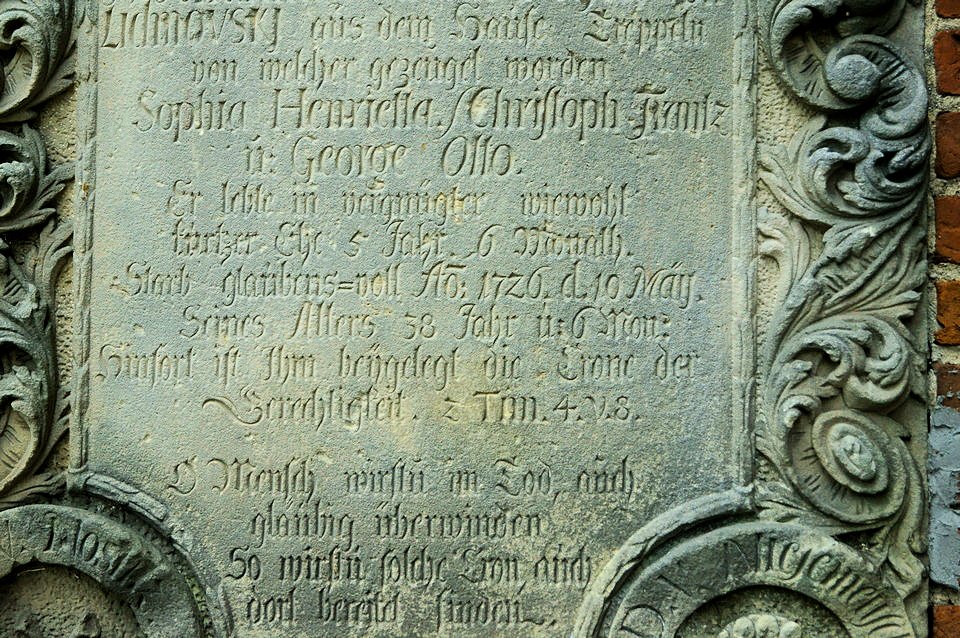 Lichnovskj aus dem Hause Treppeln
von welcher gezeuget worden
Sophia Henrietta. Christoph Frantz
u: George Otto.
Er lebte in vergnügter wiewohl
kurtzer Ehe 5 Jahr. 6 Monath.
Starb glaubens=voll Aõ: 1726. d. 10 Maÿ.
Seines Alters 38 Jahr u: 6 Mon:
Hinfort ist Ihm beÿgelegt die Crone der
Gerechtigkeit. 2 Tim. 4. v. 8.
O Mensch wirstu im Tod auch
gläubig überwinden
So wirstu solche Cron auch
dort bereitet finden.